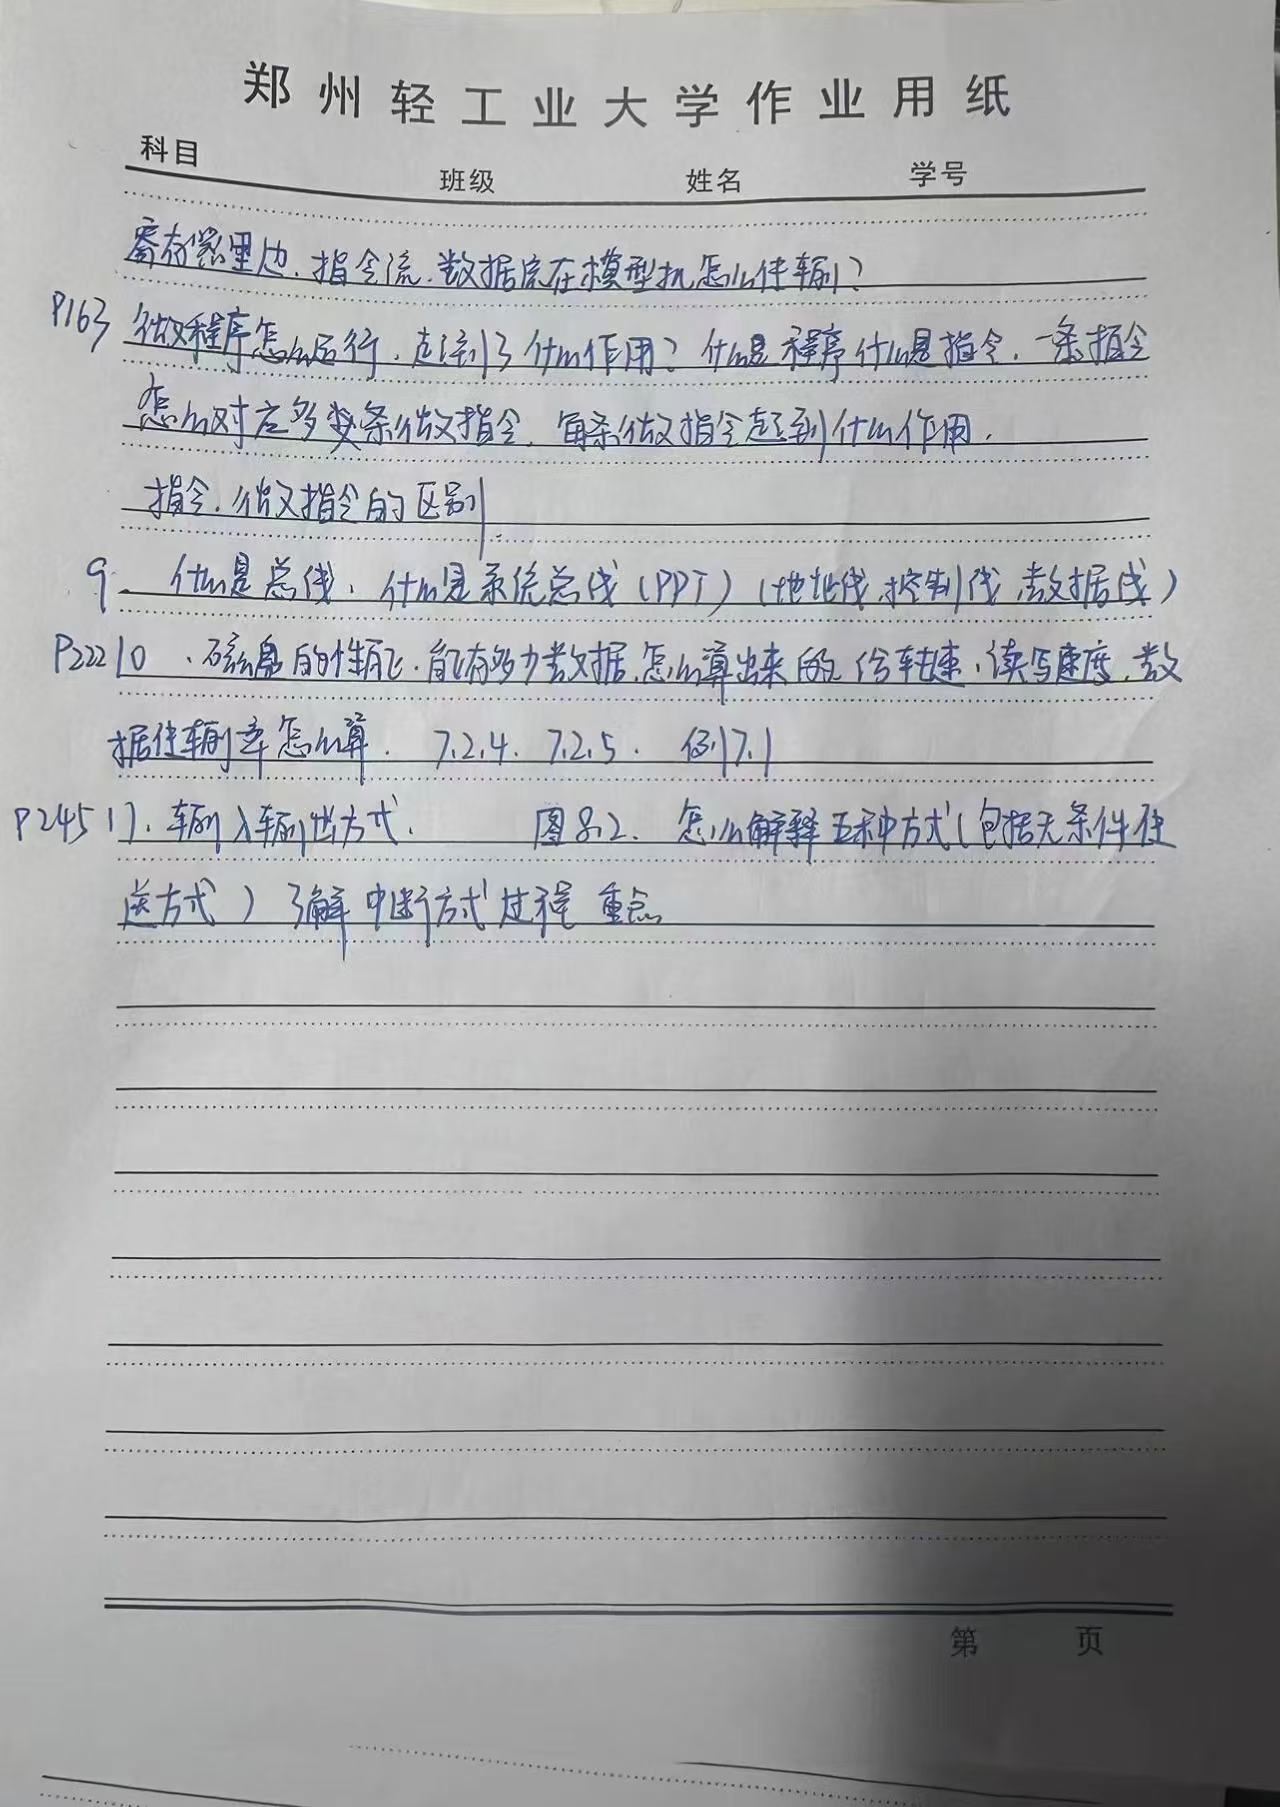 郑州轻工业大学作业用纸
科目 班级 姓名 学号
寄存器里边、指令流、数据流在模型机怎么传输?
P163 微程序怎么运行,起到了什么作用?什么是程序什么是指令,一条指令
怎么对应多条微指令,每条微指令起到什么作用.
指令、微指令的区别
9. 什么是总线,什么是系统总线(PPT)(地址线、控制线、数据线)
P222 10、磁盘的性能.能存多少数据,怎么算出来的,给转速,读写速度,数
据传输率怎么算. 7.2.4. 7.2.5. 例7.1
P245 11、输入输出方式. 图8.2. 怎么解释五种方式(包括无条件传
送方式)了解中断方式过程 重点
第 页